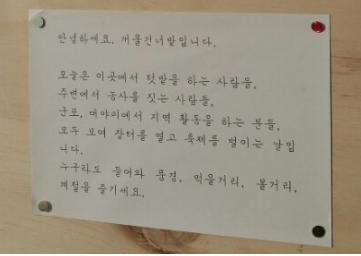 안녕하세요. 개울건너밭입니다.
오늘은 이곳에서 텃밭을 하는 사람들,
주변에서 농사를 짓는 사람들,
군포, 대야미에서 지역 활동을 하는 분들,
모두 모여 장터를 열고 축제를 벌이는 날입
니다.
누구라도 들어와 풍경, 먹을거리, 볼거리,
계절을 즐기세요.